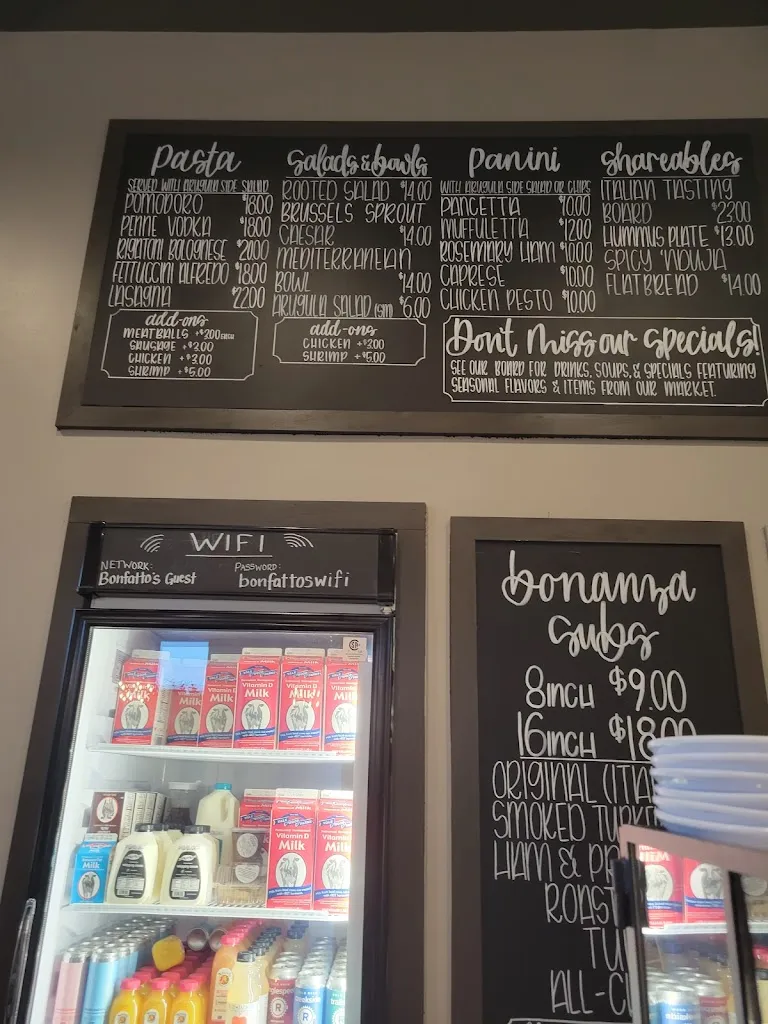 Pasta
SERVED WITH ARUGULA SIDE SALAD
POMODORO $16.00
PENNE VODKA $18.00
RIGATONI BOLOGNESE $20.00
FETTUCCINI ALFREDO $18.00
LASAGNA $22.00
add-ons
MEATBALLS +$3.00 EACH
SAUSAGE +$3.00
CHICKEN +$3.00
SHRIMP +$5.00
Salads & bowls
ROOTED SALAD $14.00
BRUSSELS SPROUT
CAESAR $14.00
MEDITERRANEAN
BOWL $14.00
ARUGULA SALAD (SM) $6.00
add-ons
CHICKEN +$3.00
SHRIMP +$5.00
Panini
WITH ARUGULA SIDE SALAD OR CHIPS
PANCETTA $10.00
MUFFULETTA $12.00
ROSEMARY HAM $10.00
CAPRESE $10.00
CHICKEN PESTO $10.00
Shareables
ITALIAN TASTING
BOARD $23.00
HUMMUS PLATE $13.00
SPICY 'NDUJA
FLATBREAD $14.00
Don't miss our specials!
SEE OUR BOARD FOR DRINKS, SOUPS, & SPECIALS FEATURING
SEASONAL FLAVORS & ITEMS FROM OUR MARKET.
WIFI
NETWORK: PASSWORD:
Bonfatto's Guest bonfattoswifi
Vitamin D
Milk
Vitamin D
Milk
Vitamin D
Milk
Vitamin D
Milk
Milk
Vitamin D
Milk
Milk
bonanza
subs
8INCH $9.00
16INCH $18.00
ORIGINAL (ITA
SMOKED TURKE
HAM & PR
ROAST
TU
ALL-C